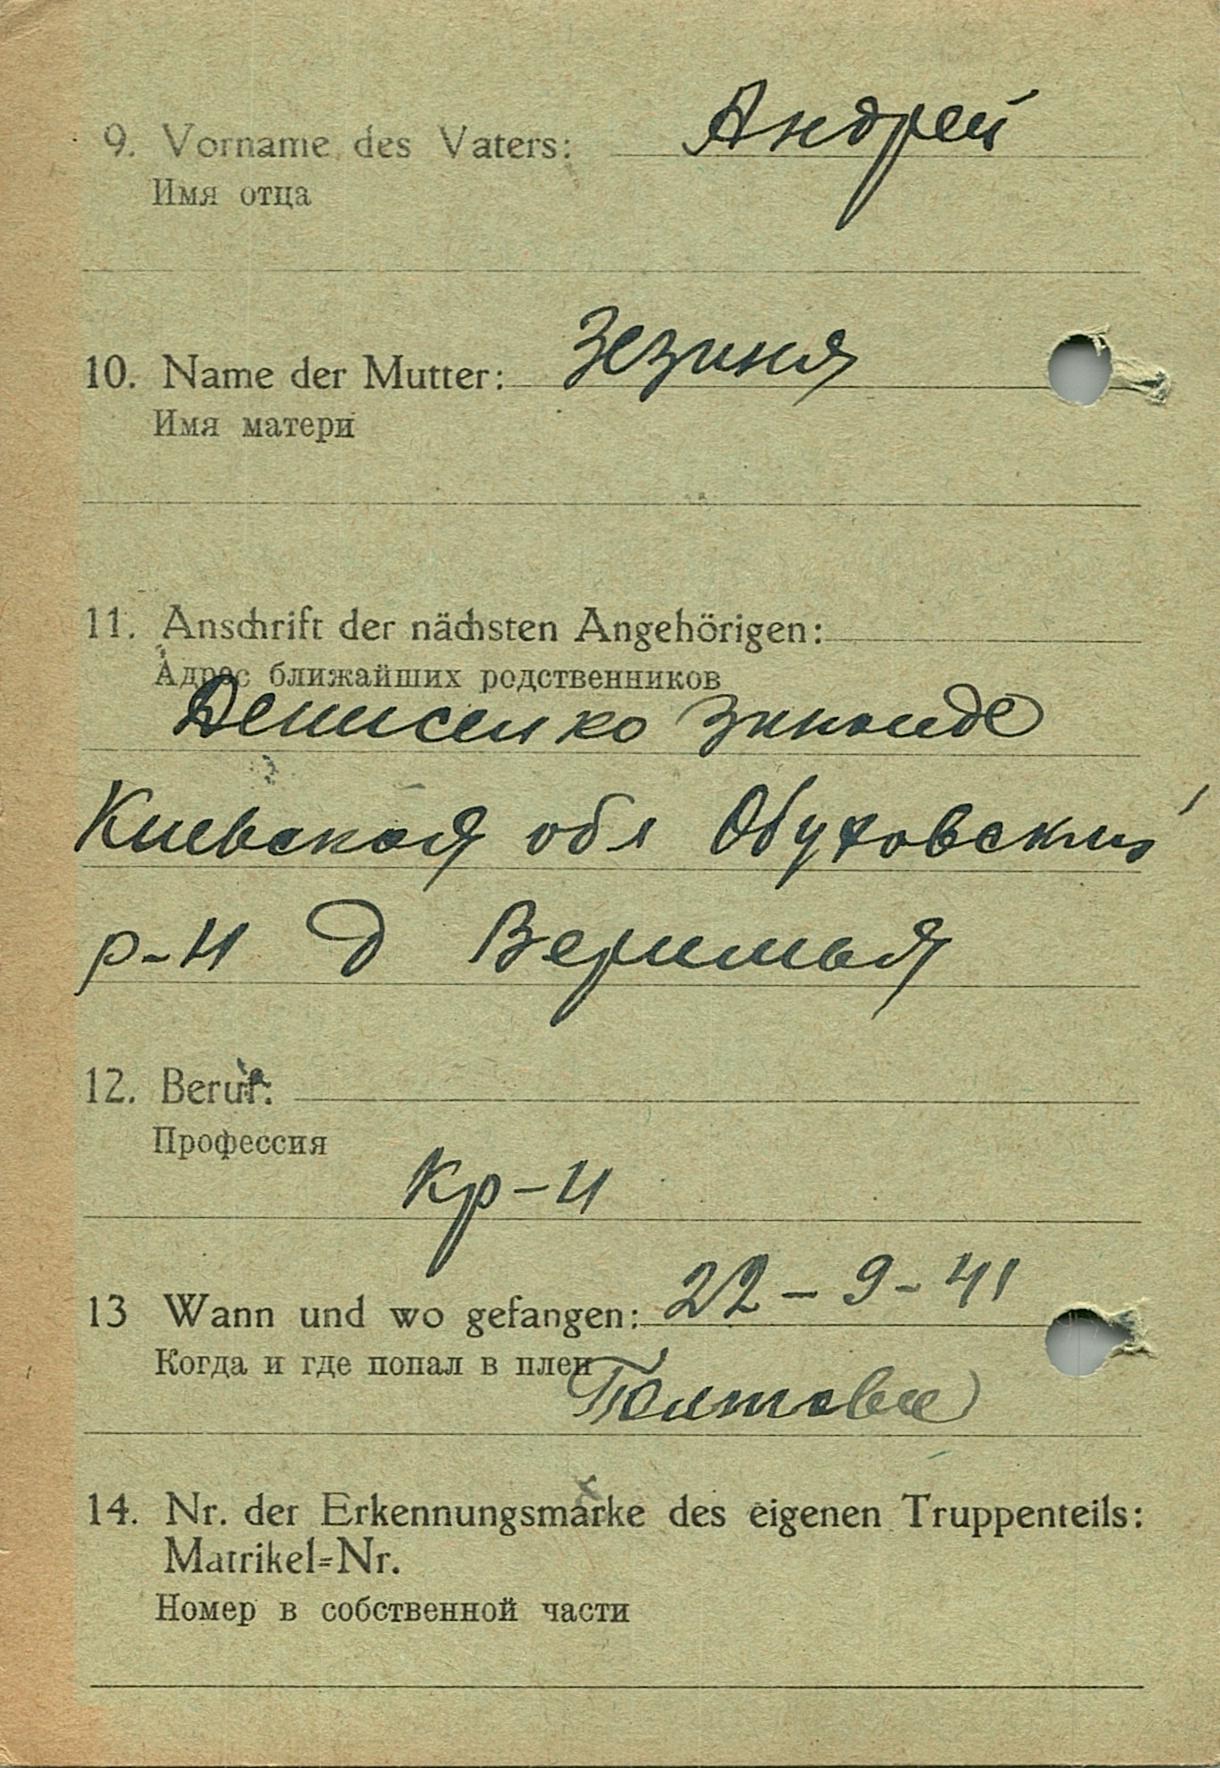 9. Vorname des Vaters: Андрей
Имя отца
10. Name der Mutter: Зезиня
Имя матери
11. Anschrift der nächsten Angehörigen:
Адрес ближайших родственников
Денисенко Зинаиде
Киевская обл Обуховский
р-н д Веримья
12. Beruf:
Профессия
Кр-н
13 Wann und wo gefangen: 22-9-41
Когда и где попал в плен
Полтава
14. Nr. der Erkennungsmarke des eigenen Truppenteils:
Matrikel=Nr.
Номер в собственной части